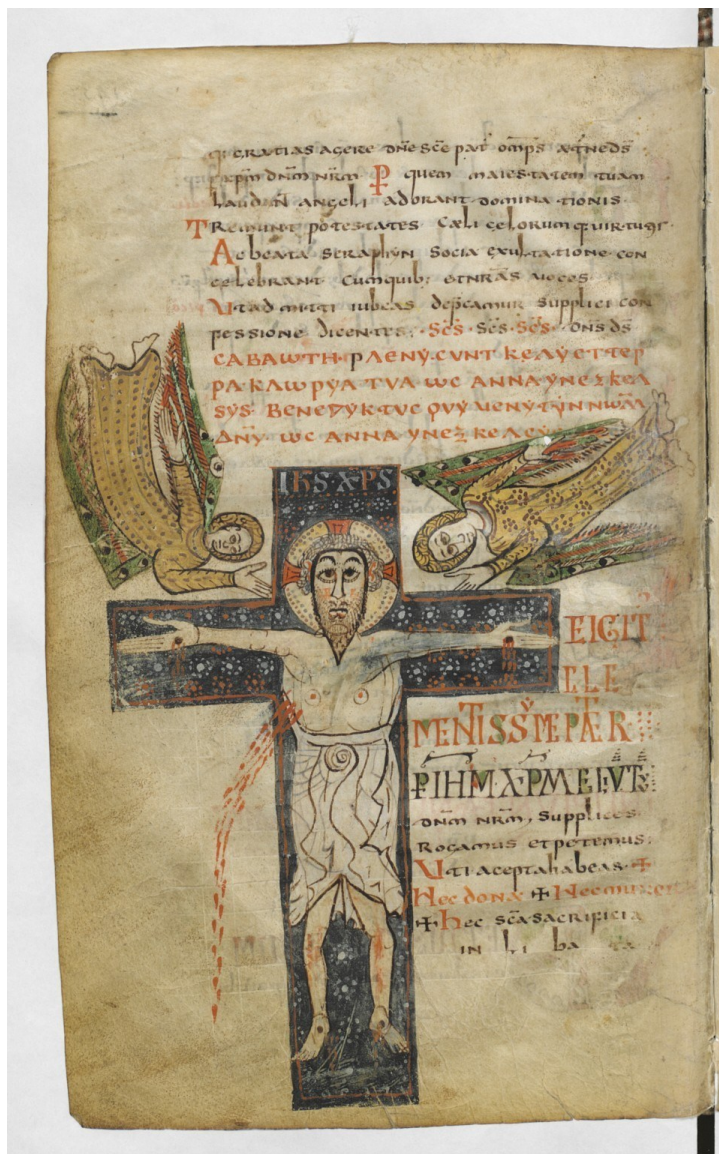 GRATIAS AGERE DNE SCE PAT OMPS AETNE DS
XPM DNM NRM P QUEM MAIESTATEM TUAM
LAUDN ANGELI ADORANT DOMINATIONIS
TREMUNT POTESTATES CAELI CELORUMQ VIRTUTES
AC BEATA SERAPHYN SOCIA EXULTATIONE CON
CELEBRANT CUMQUIB: ETNRAS VOCES
UT ADMITTI IUBEAS DEPCAMUR SUPPLICI CON
FESSIONE DICENTES: SCS SCS SCS DNS DS
CABAωTH PLENY CVNT KELY ET TER
RA KLωRYA TVA ωC ANNA YNEXKEL
SYS BENEDYKTVC QVY VENY TYN NωM
DNY ωC ANNA YNEXKELCY
IHS XPS
EIGIT
ELE
MENTISSYME PATER
P IHM XPM
DNM NRM, SUPPLICES
ROGAMUS ET PETEMUS:
UTI ACEPTA HABEAS ✠
HEC DONA ✠ HEC MUNERA
✠ HEC SCA SACRIFICIA
IN LI BA TA